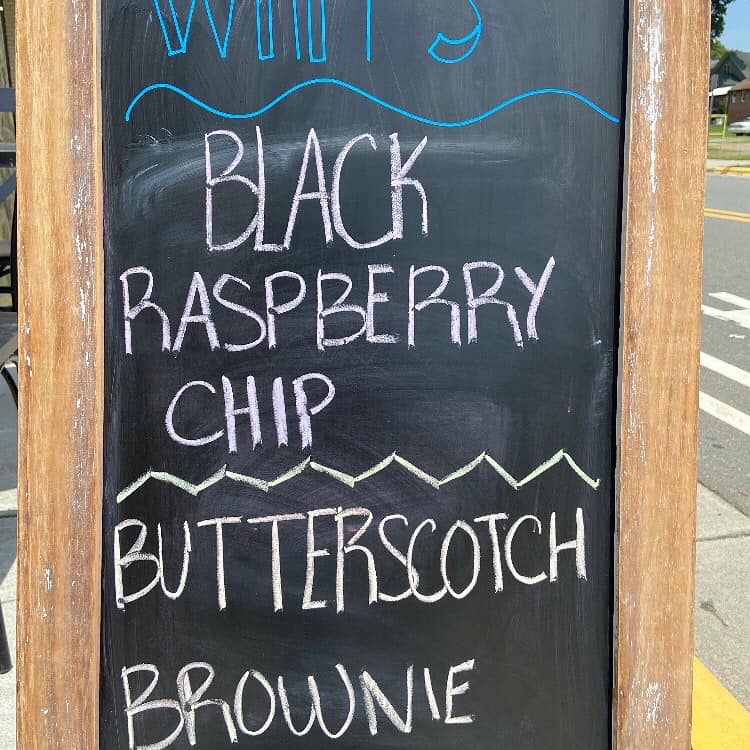 BLACK
RASPBERRY
CHIP
BUTTERSCOTCH
BROWNIE